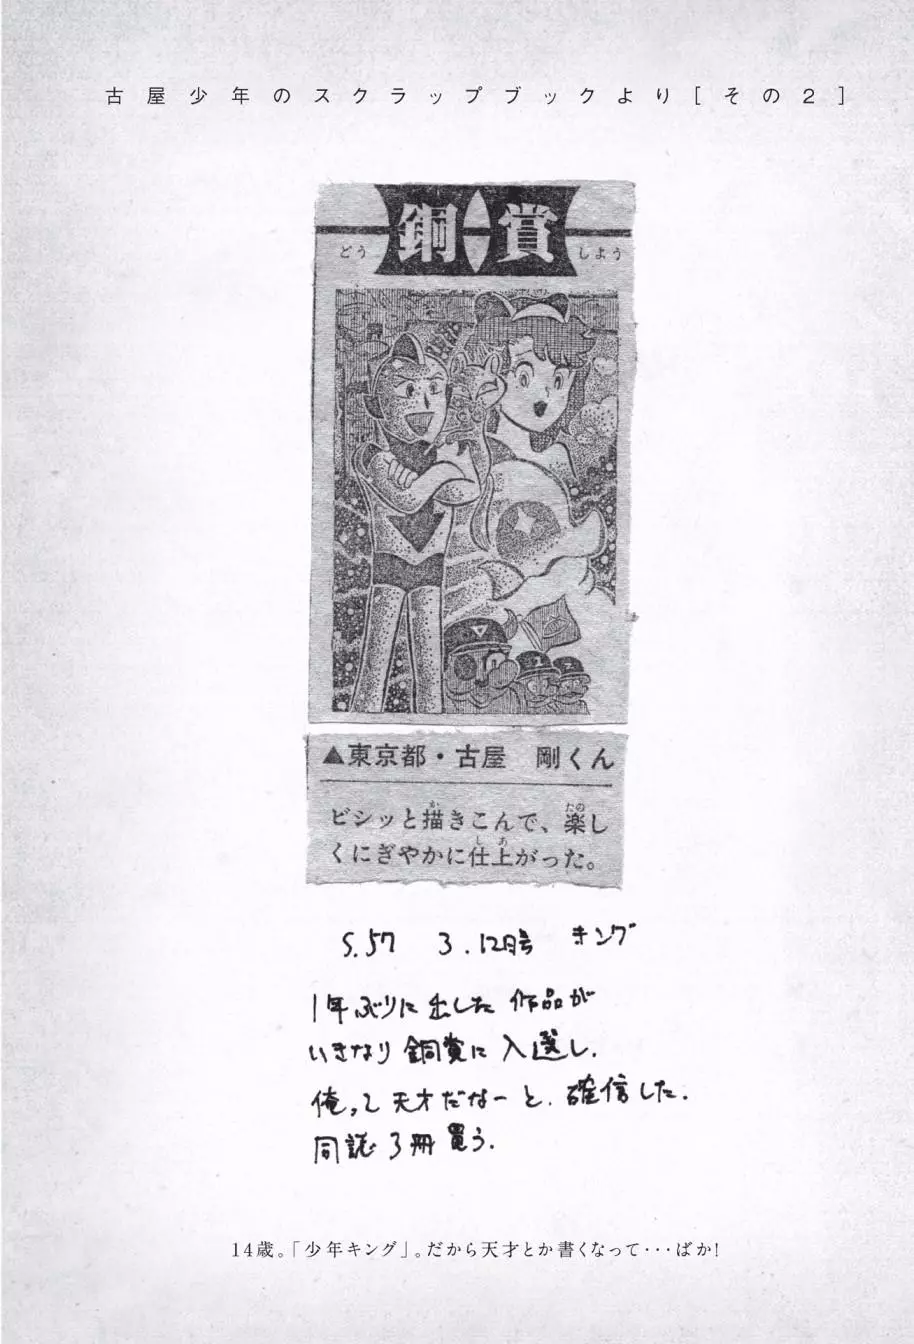 古屋少年のスクラップブックより[その2]
銅賞
どう しょう
▲東京都・古屋 剛くん
ビシッと描きこんで、楽し
くにぎやかに仕上がった。
S.57 3.12月号 キング
1年ぶりに出した作品が
いきなり銅賞に入選し.
俺って天才だなーと.確信した.
同誌3冊買う.
14歳。「少年キング」。だから天才とか書くなって・・・ばか!